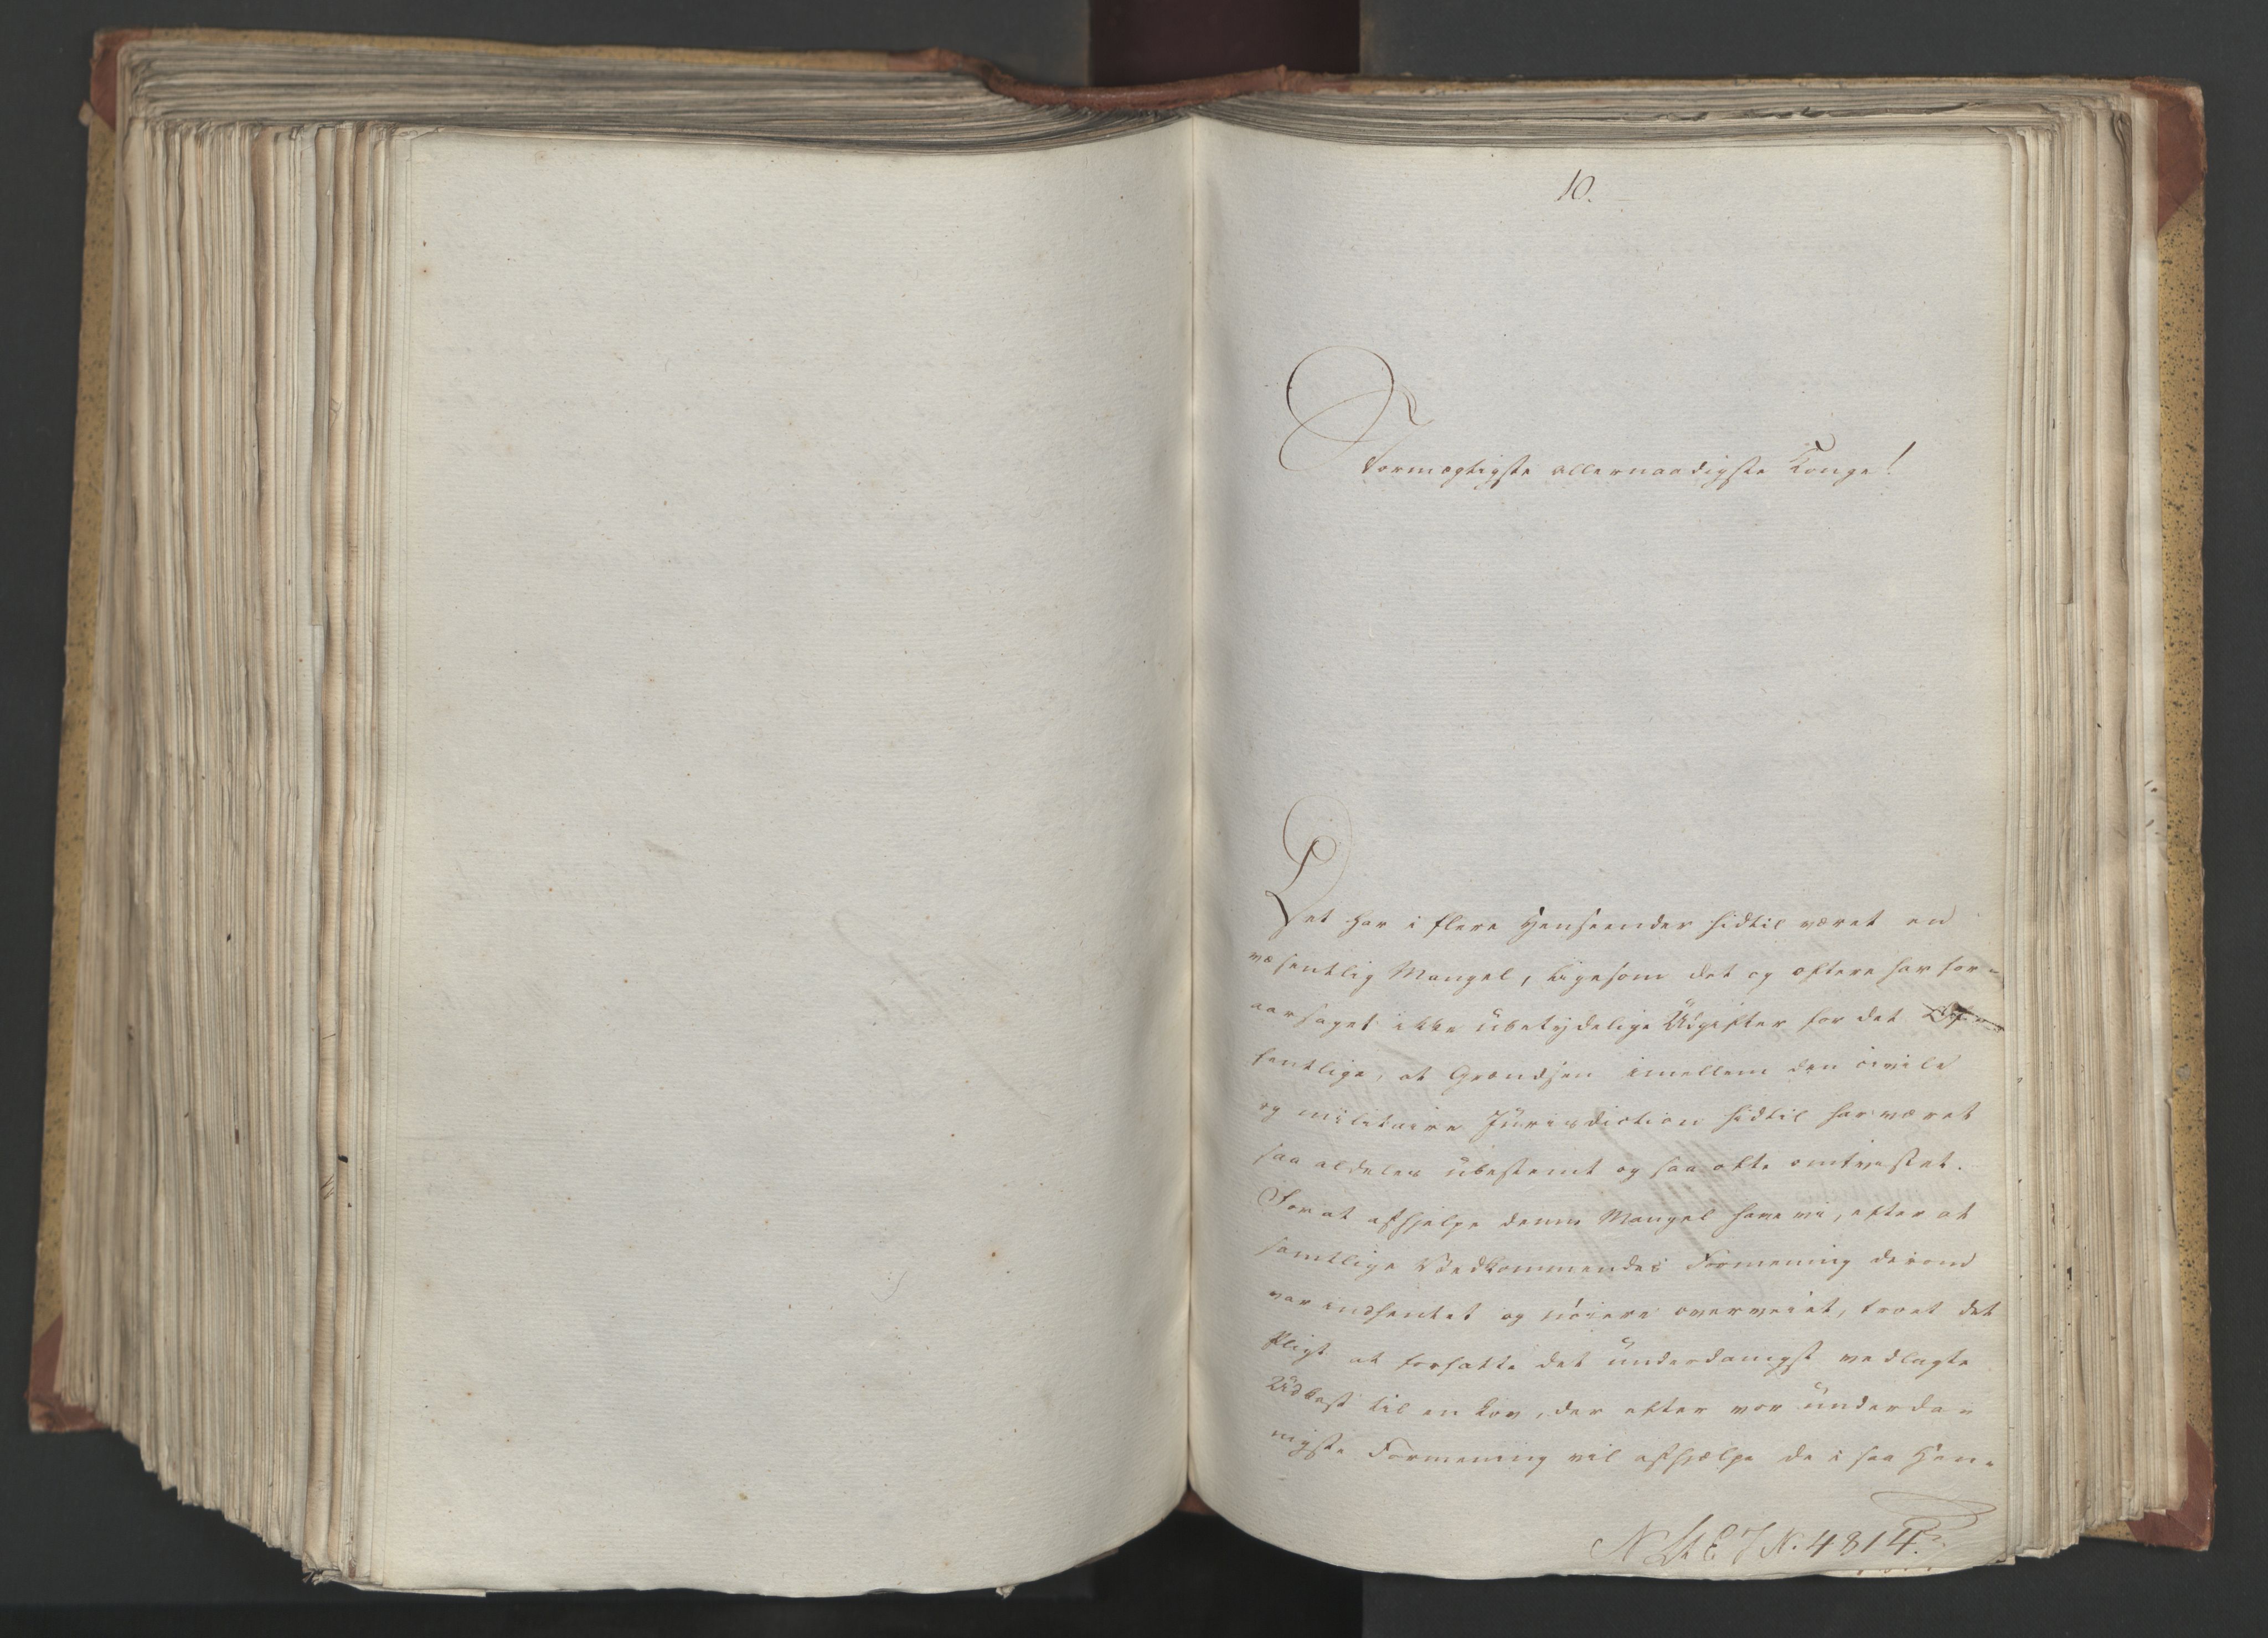 10.
Stormægtigste allernaadigste Konge!
Det har i flere Henseender hidtil været en
væsentlig Mangel, ligesom det og oftere har for-
aarsaget ikke ubetydelige Udgifter for det Of-
fentlige, at Grændsen imellem den civile
og militaire Jurisdiction hidtil har været
saa aldeles ubestemt og saa ofte omtvistet.
For at afhjelpe denne Mangel have vi, efter at
samtlige Vedkommendes Formening derom
var indhentet og nöiere overveiet, troet det
Pligt at forfatte det underdanigst vedlagte
Udkast til en Lov, der efter vor underda-
nigste Formening vil afhjælpe de i saa Hen-
4814.